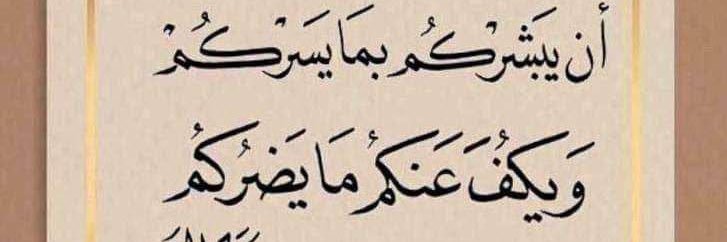 أن يَبشرْكُم بمَا يسَرْكُمْ
وَيكفُ عَنكمُ مَا يَضرُكمُ